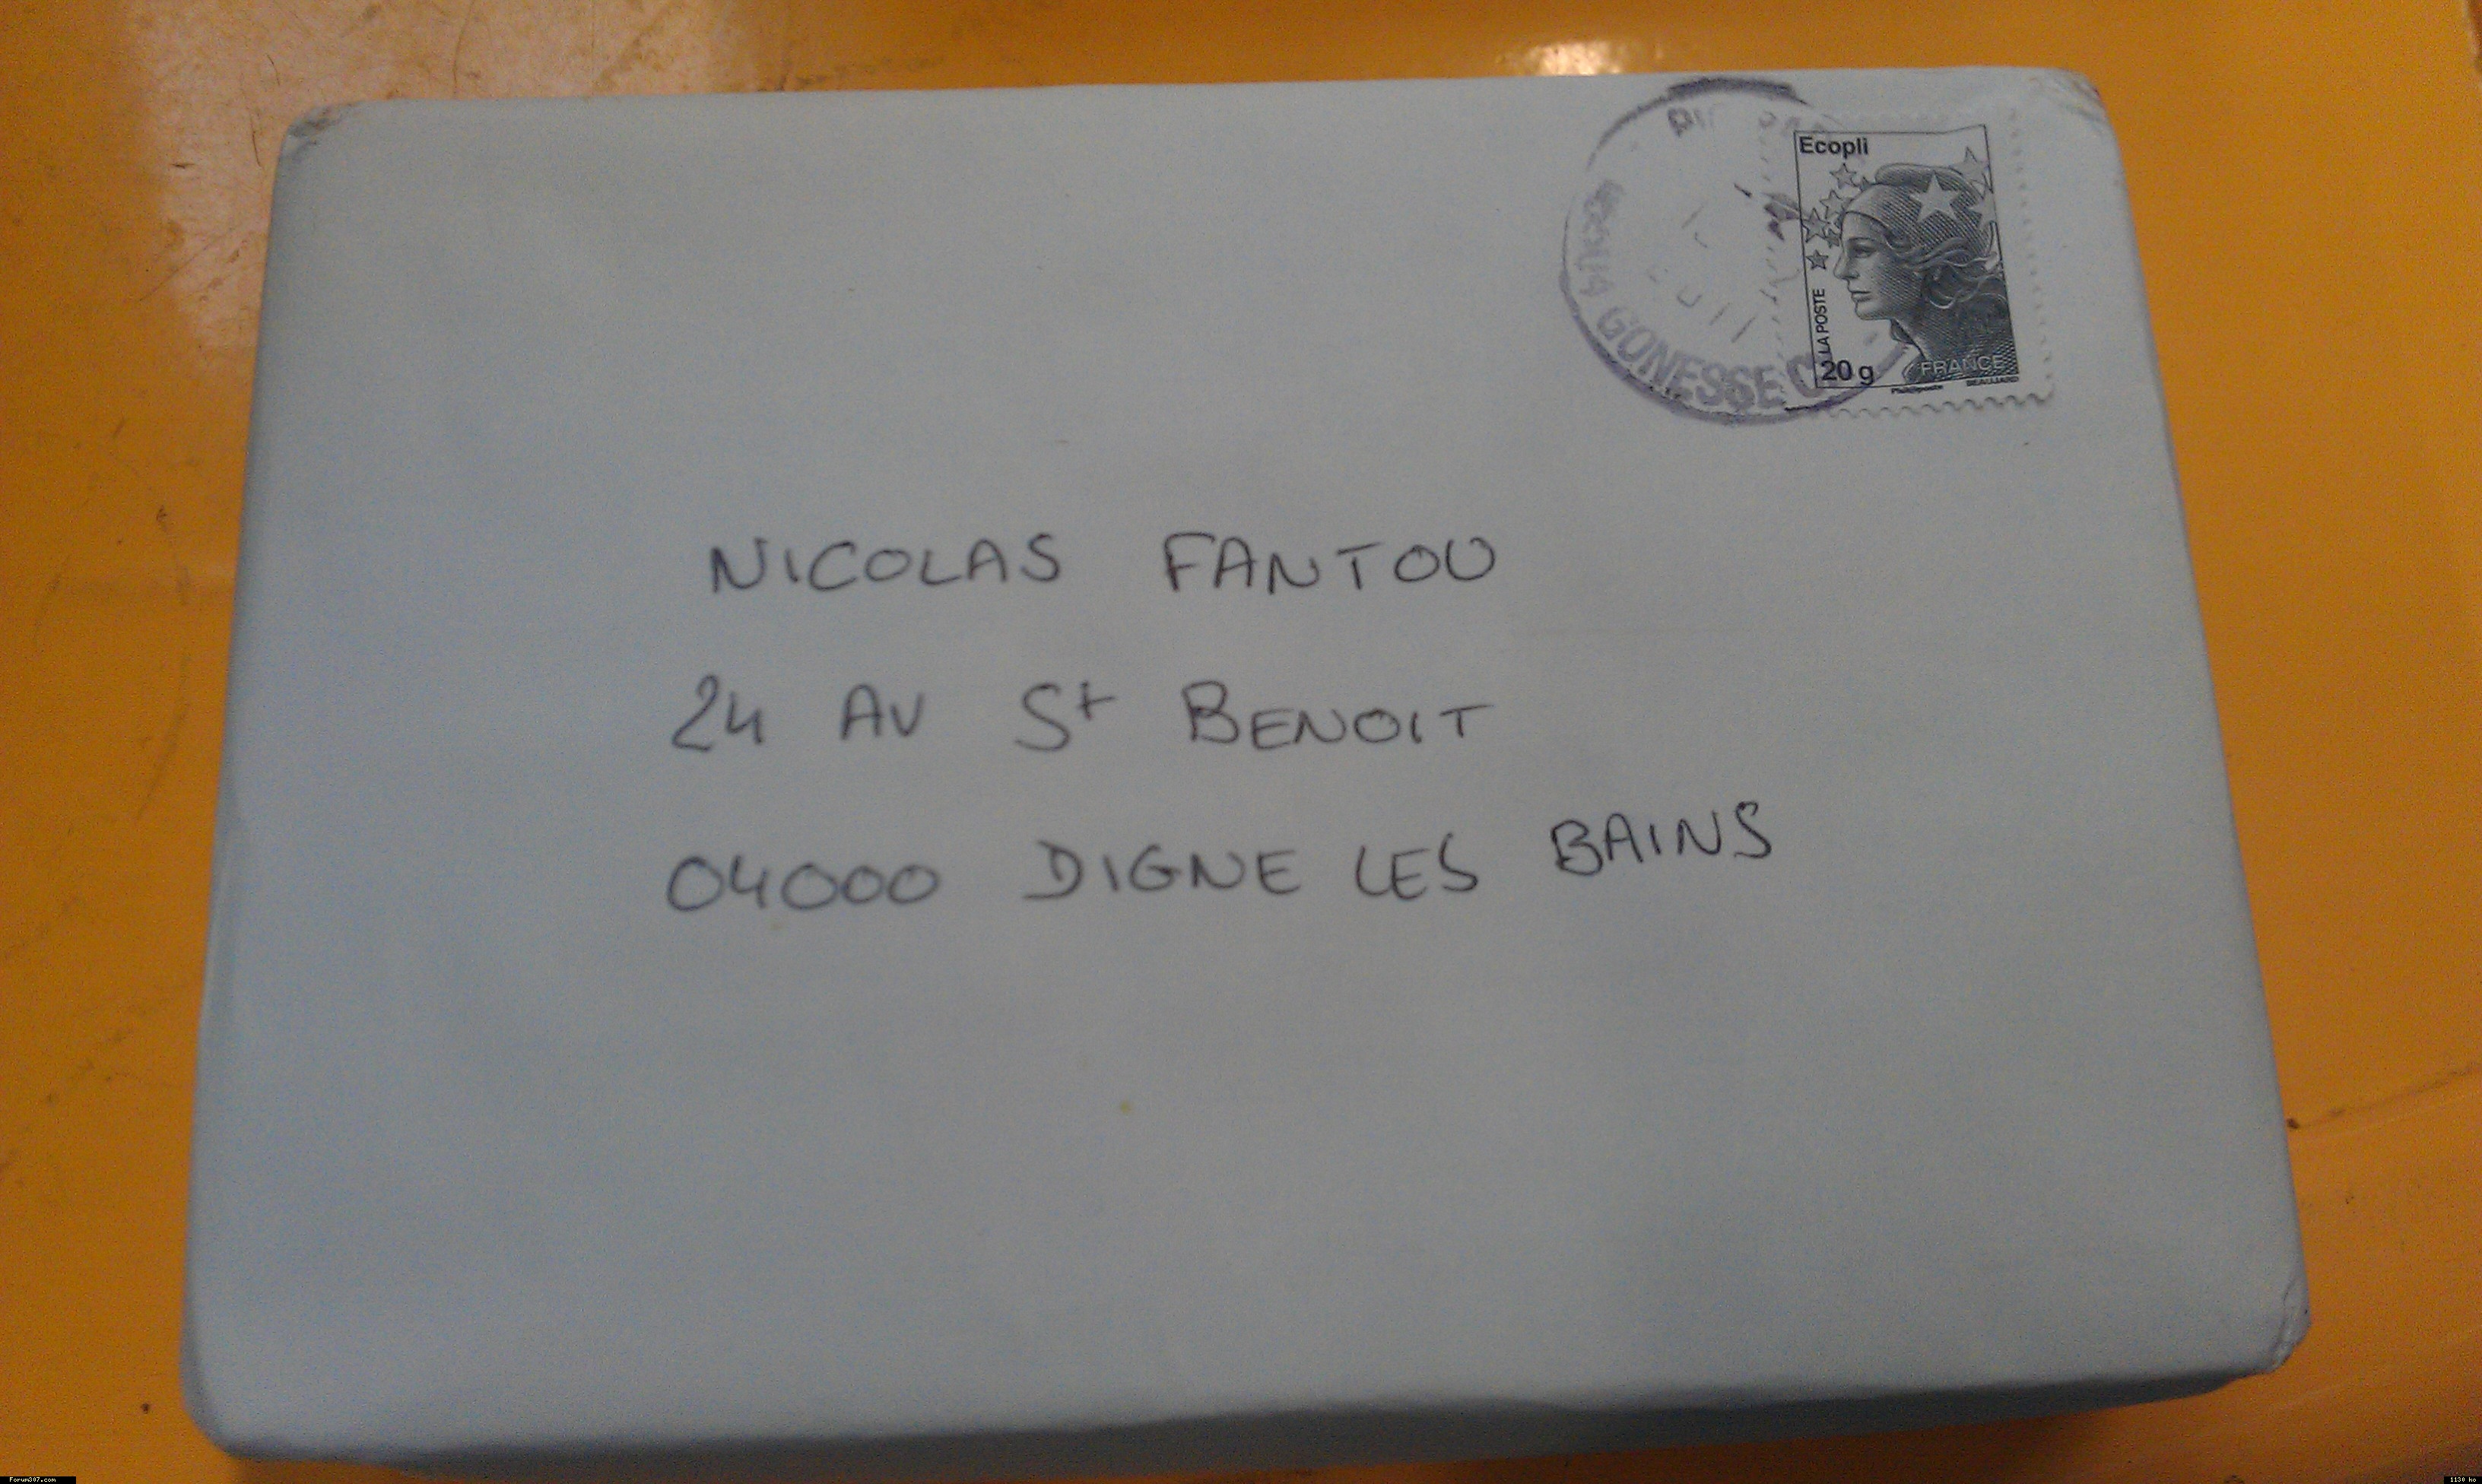 Ecopli
LA POSTE
20 g
FRANCE
Philaposte
BEAUJARD
GONESSE
NICOLAS FANTOU
24 AV St BENOIT
04000 DIGNE LES BAINS
Forum307.com
1130 ko